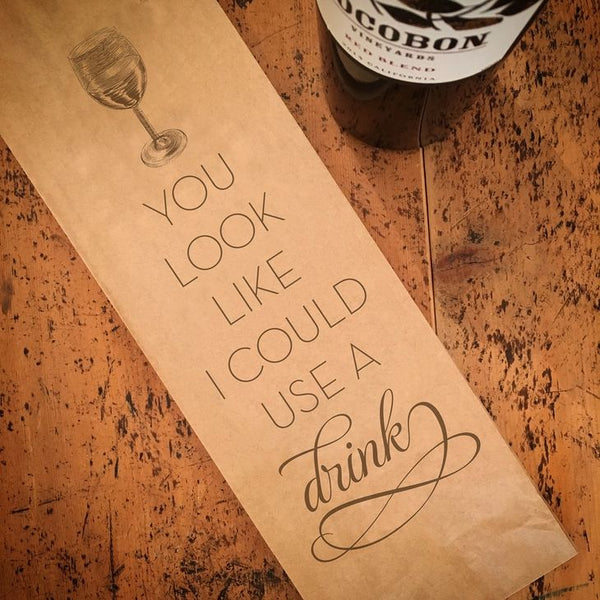 OCOBON
VINEYARDS
RED BLEND
CALIFORNIA
YOU
LOOK
LIKE
I COULD
USE A
drink